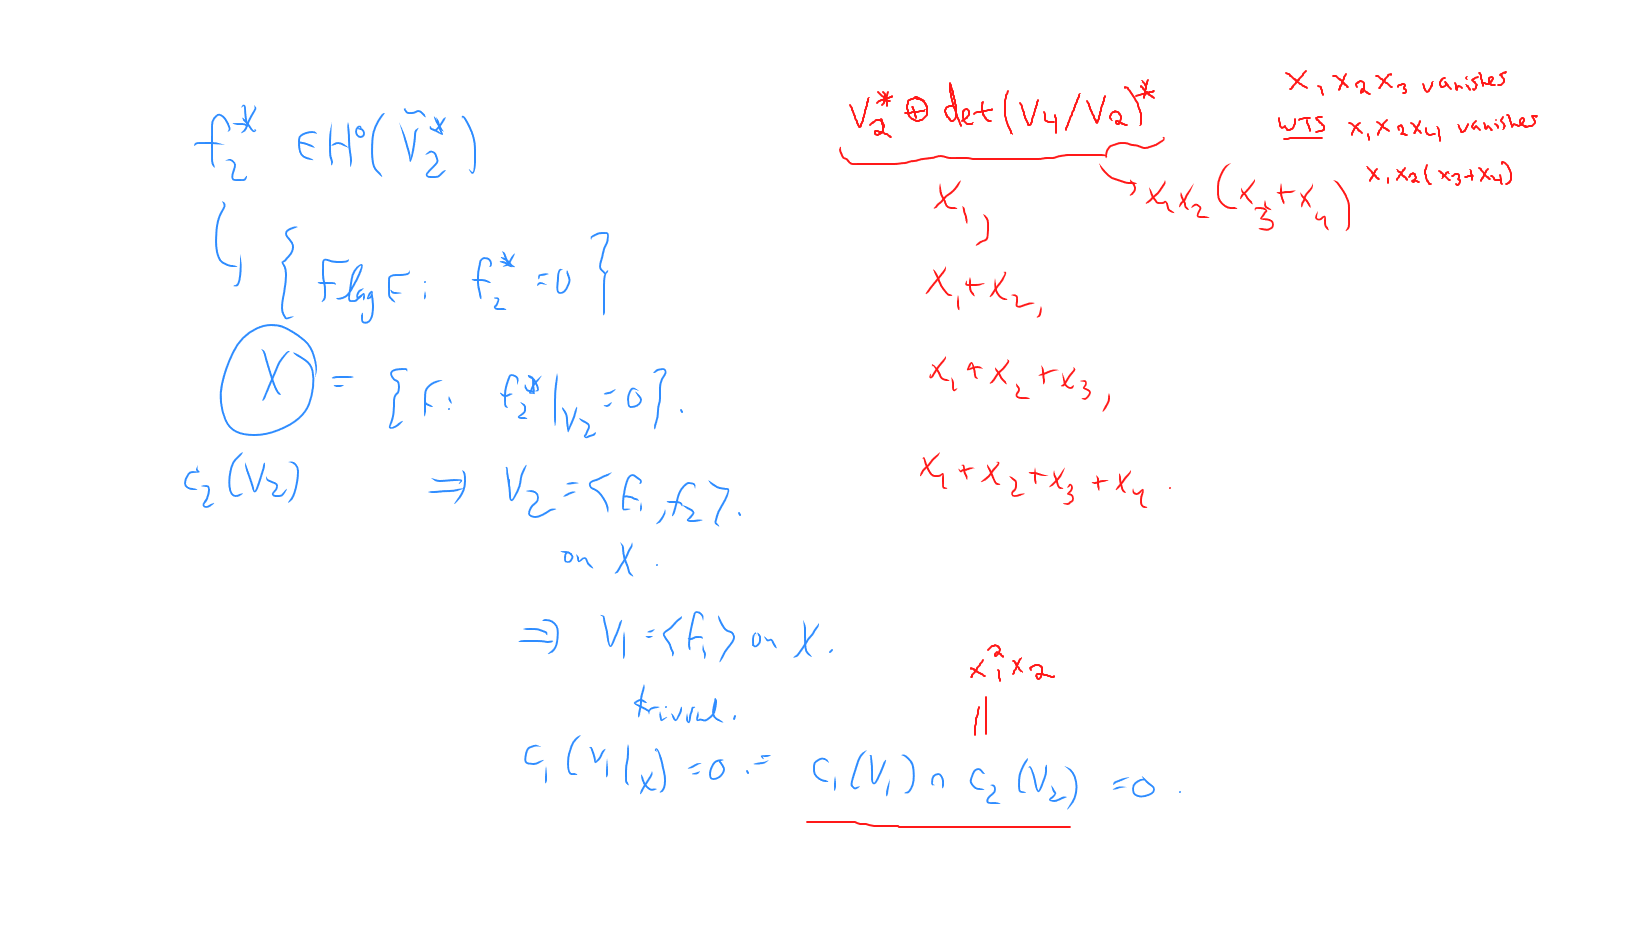 f₂* ∈ H⁰(Ṽ₂*)
{ Flag F: f₂* = 0 }
X = { F: f₂*|_{V₂} = 0 }.
c₂(V₂) ⇒ V₂ = <f₁, f₂>.
on X.
⇒ V₁ = <f₁> on X.
trivial.
c₁(V₁|_X) = 0 . = c₁(V₁) ∩ c₂(V₂) = 0 .
V₂* ⊕ det(V₄/V₂)*
x₁, → x₁x₂(x₃+x₄)
x₁+x₂,
x₁+x₂+x₃,
x₁+x₂+x₃+x₄ .
x₁x₂x₃ vanishes
WTS x₁x₂x₄ vanishes
x₁x₂(x₃+x₄)
x₁²x₂
||